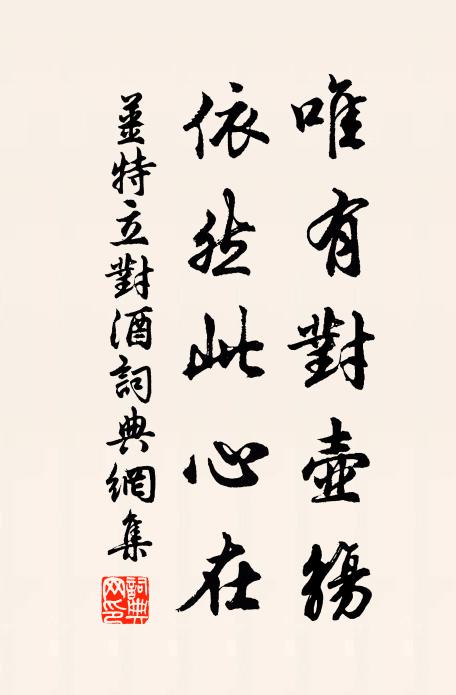 唯有對壺觴
依然此心在
姜特立對酒詞典網集
詞典网印